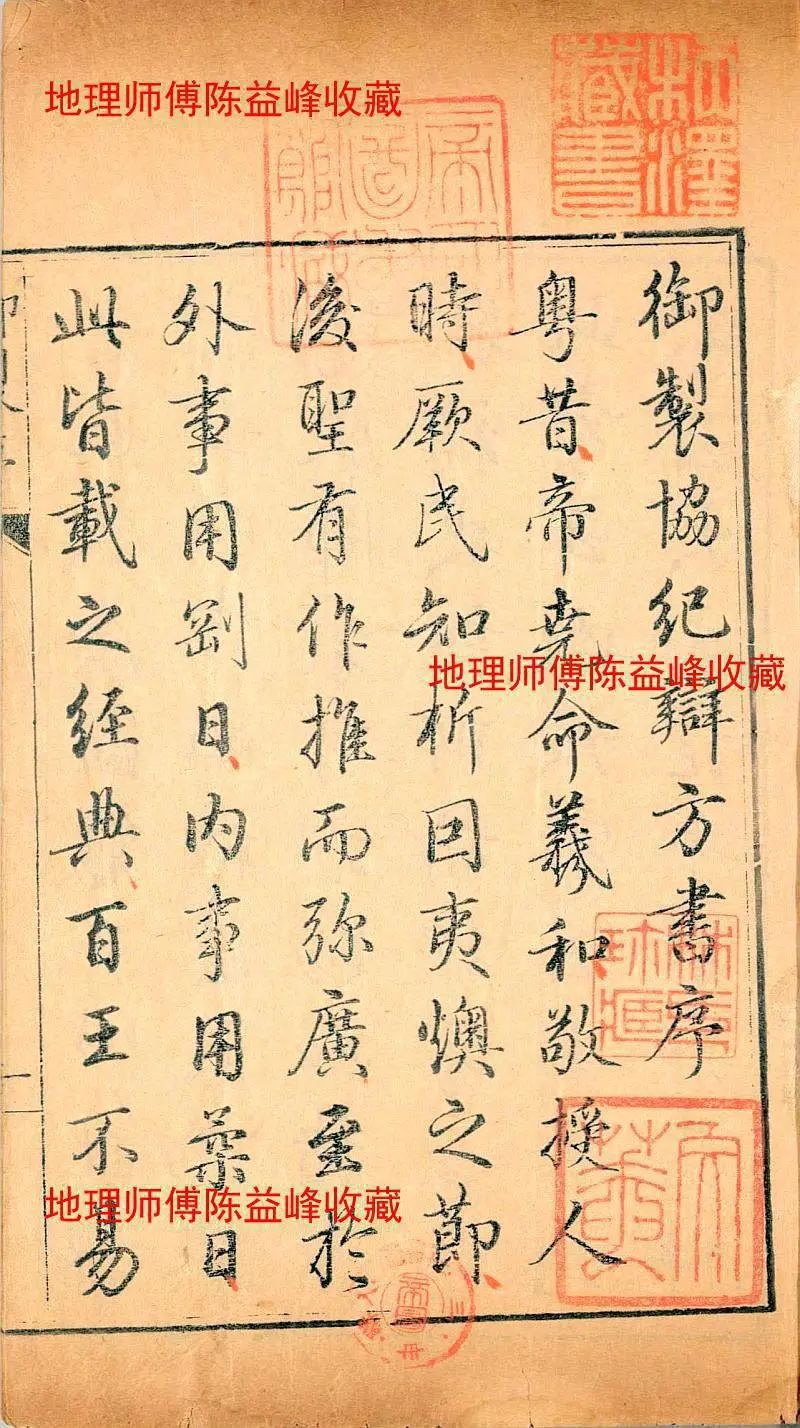 地理师傅陈益峰收藏
御製協紀辯方書序
粤昔帝堯命羲和敬授人
時厥民知析因夷燠之節
後聖有作推而弥廣至於
外事用剛日内事用柔日
此皆載之經典百王不易
地理师傅陈益峰收藏
地理师傅陈益峰收藏